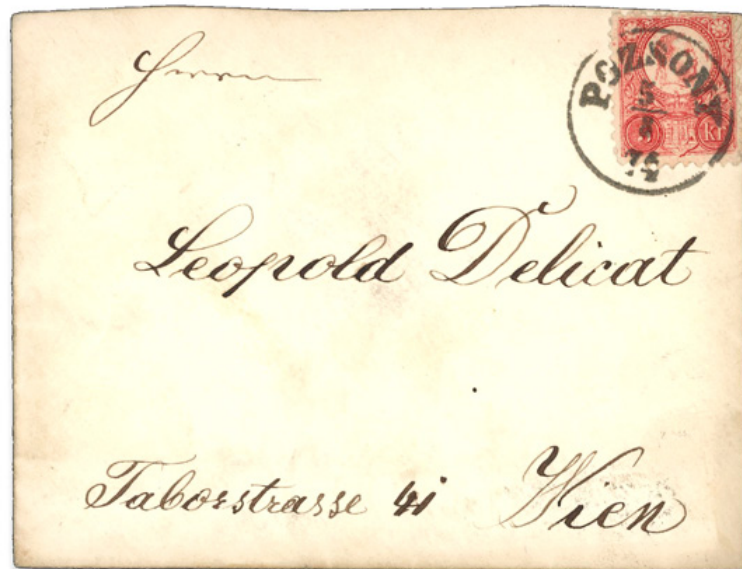 Herrn
POZSONY
5
5 kr
Leopold Delicat
Taborstrasse 41 Wien